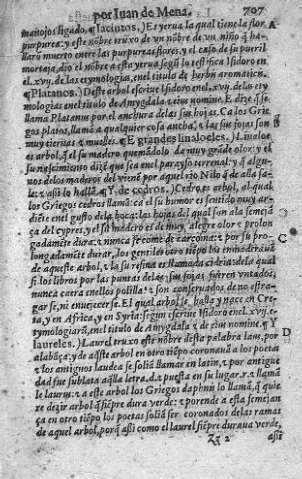 por Iuan de Mena. 707
manojos ligado. ¶ Iacintos.) Es yerua la qual tiene la flor A
purpurea: y este nõbre truxo de vn nõbre de vn niño q̃ ha-
llarõ muerto entre las purpureas flores, y el caso de su pueril
mortaja dio el nõbre a esta yerua segũ lo testifica Isidoro en
el .xvij. de las etymologias, en el titulo de herbis aromaticis.
¶ Platanos.) Deste arbol escriue Isidoro enel .xvij. delas ety
mologias enel titulo de Amygdala & eius nomine. E dize q̃ se
llama Platanus por el anchura de las sus hojas. Ca los Grie
gos platos, llamã a qualquier cosa ancha, & las sus hojas son
muy tiernas & muelles. ¶ E grandes linaloeles.) Linaloe
es arbol, q̃ el su madero quemãdolo da muy grãde olor: y el
su nascimiento dizẽ que sea enel parayso terrenal: y q̃ algu-
nos delos maderos del vienẽ por aquel rio Nilo
¶ Y de cedros.) Cedro, es arbol, al qual
los Griegos cedros llamã: ca el su humor es sentido muy ar-
diẽte enel gusto dela boca: las hojas del qual son ala semejã
ça del cypres, y el su madero es de muy alegre olor & prolon
gadamẽte dura: & nunca se come de carcoma: & por su pro- C
longadamẽte durar, los gentiles otro tiẽpo
de aqueste arbol, & la su resina es llamada cidria: dela qual
si los libros por las puntas delas sus fojas fueren vntados,
nunca caera enellos polilla: & son conseruados de no estra-
gar se, ni enuejecer se. El qual arbol se halla y nace en Cre-
ta, y en Africa, y en Syria: segun escriue Isidoro enel .xvij. e-
tymologiarũ, enel titulo de Amygdala & de eius nomine. ¶ Y
laureles.) Laurel truxo este nõbre desta palabra laus, por D
alabãça: y de aq̃ste arbol en otro tiẽpo coronauã a los poetas
& los antiguos laudea se solia llamar en latin, & por antigue
dad fue sublata aq̃lla letra .d. & puesta en su lugar .r. & llamã
le laurus: & a este arbol los Griegos daphnin lo llamã, q̃ quie
re dezir arbol q̃ siẽpre dura verde: & porende a esta semejan
ça en otro tiẽpo los poetas soliã ser coronados delas ramas
de aquel arbol, porq̃ assi como el laurel siẽpre duraua verde,
2 assi